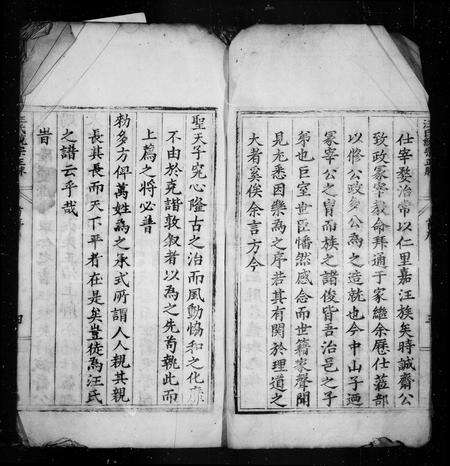 仕宰婺治常以仁里嘉汪族矣時誠齋公
致政冢宰敦命拜通于家繼余歷仕蒞部
以修公政多公為之造就也今中山子迺
冢宰公之胄而族之諸俊皆吾治邑之子
弟也巨室世臣恍然感念而世籍家聲聞
見尤悉因樂為之序若其有關於理道之
大者奚俟余言方今
聖天子究心隆古之治而風動恊和之化靡
不由於堯諧敦叙者以為之先苟執此而
上薦之將必普
勑多方俾萬姓為之承式所謂人人親其親
長其長而天下平者在是矣豈徒為汪氏
之譜云乎哉
旹